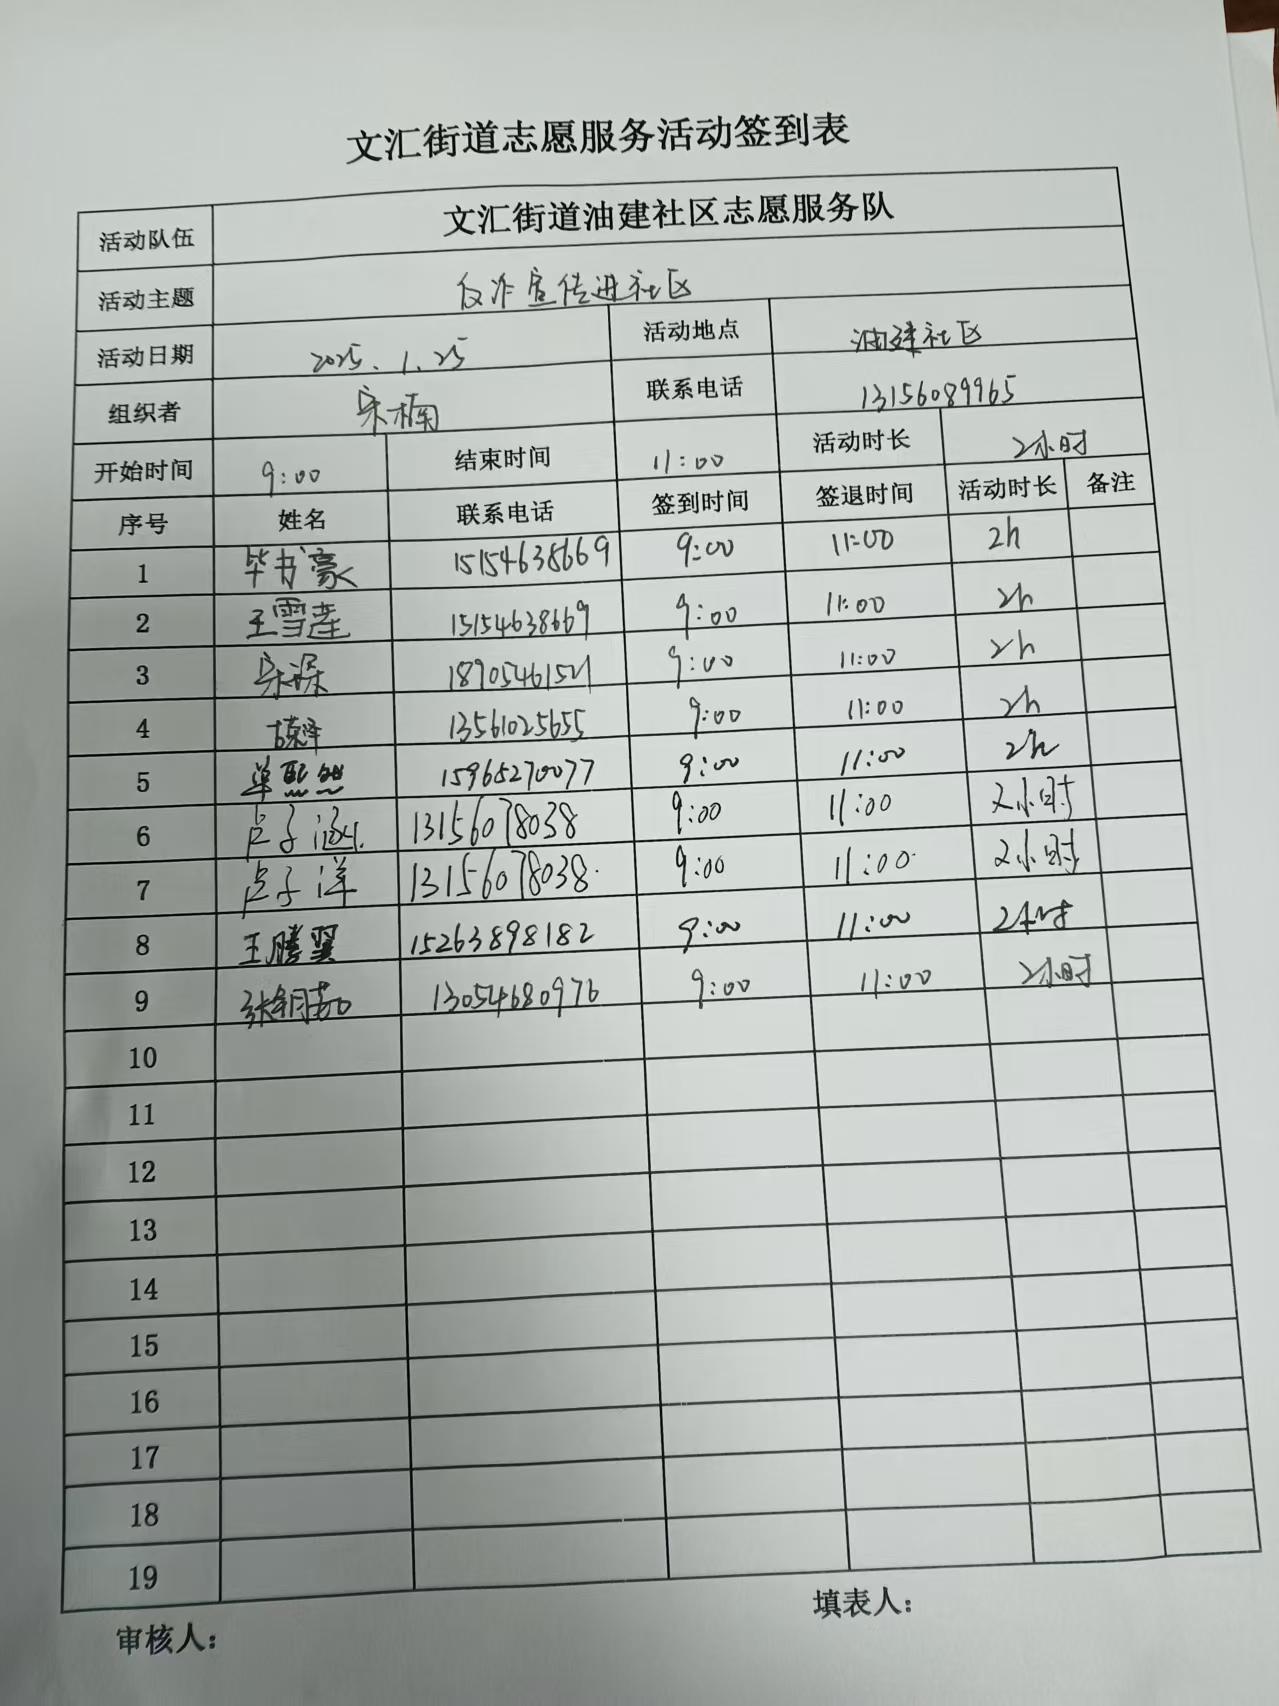 文汇街道志愿服务活动签到表
活动队伍 文汇街道油建社区志愿服务队
活动主题 反诈宣传进社区
活动日期 2025.1.25 活动地点 油建社区
组织者 宋楠 联系电话 13156089965
开始时间 9:00 结束时间 11:00 活动时长 2小时
序号 姓名 联系电话 签到时间 签退时间 活动时长 备注
1 毕书豪 15154638669 9:00 11:00 2h
2 王雪莲 15154638669 9:00 11:00 2h
3 宋深 18905461521 9:00 11:00 2h
4 13561025655 9:00 11:00 2h
5 单熙然 15965270077 9:00 11:00 2h
6 卢子涵 13156078038 9:00 11:00 2小时
7 卢子洋 13156078038. 9:00 11:00. 2小时
8 王腾翼 15263898182 9:00 11:00 2小时
9 13054680976 9:00 11:00 2小时
10
11
12
13
14
15
16
17
18
19
审核人： 填表人：